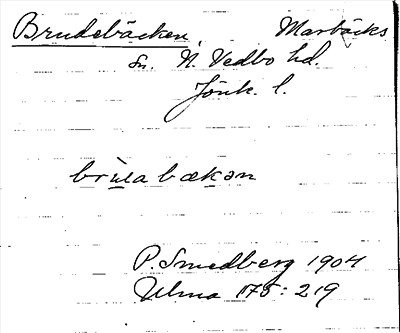 Brudebäcken, Marbäcks
sn. N. Vedbo hd.
Jönk. l.
brùabækən
P. Smedberg 1904
Ulma 175: 219